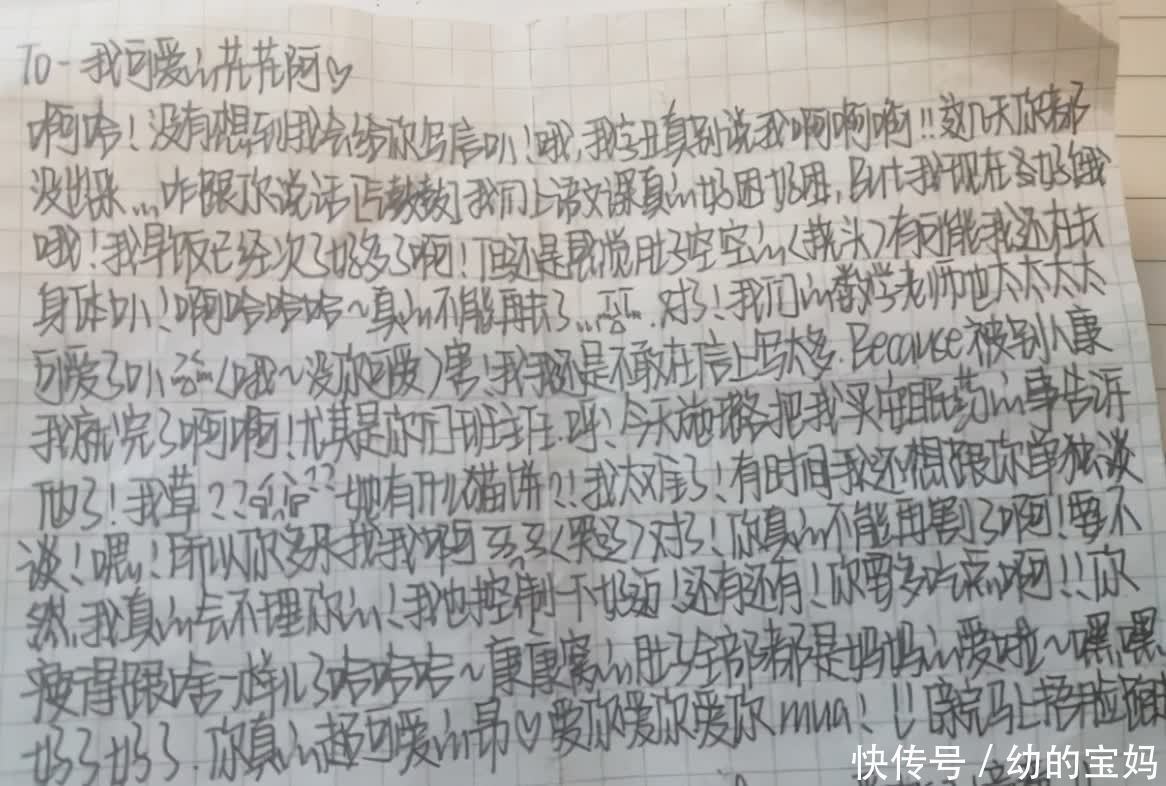 To - 我可爱的花花阿♡
啊哈！没有想到我会给你写信叭！哦，我字丑真别说我啊啊啊！！这几天你都
没出来...咋跟你说话[抱歉]我们上语文课真的好困好困，But我现在又好饿
哦！我早饭已经次了好多了啊！但还是感觉肚子空空的(挠头)有可能我还在长
身体叭！啊哈哈哈～真的不能再长了...对了！我们的数学老师也太太太太
可爱了叭(哦～没你可爱)害！我还是不敢在信上写太多.Because被别人康
我就完了啊啊！尤其是你们班主任.呼！今天她把我买安眠药的事告诉
他了！我草??她有什么猫饼?!我太难了！有时间我还想跟你单独谈
谈！嗯！所以你多来找我啊(哭了)对了！你真的不能再割了啊！要不
然，我真的会不理你的！我也控制一下好迈！还有还有！你要多吃点啊！！你
瘦得跟啥一样儿了哈哈哈～康康窝的肚子全部都是妈妈的爱啦～嘿嘿
好了好了.你真的超可爱的昂♡爱你爱你爱你mua！！！
快传号 / 幼的宝妈